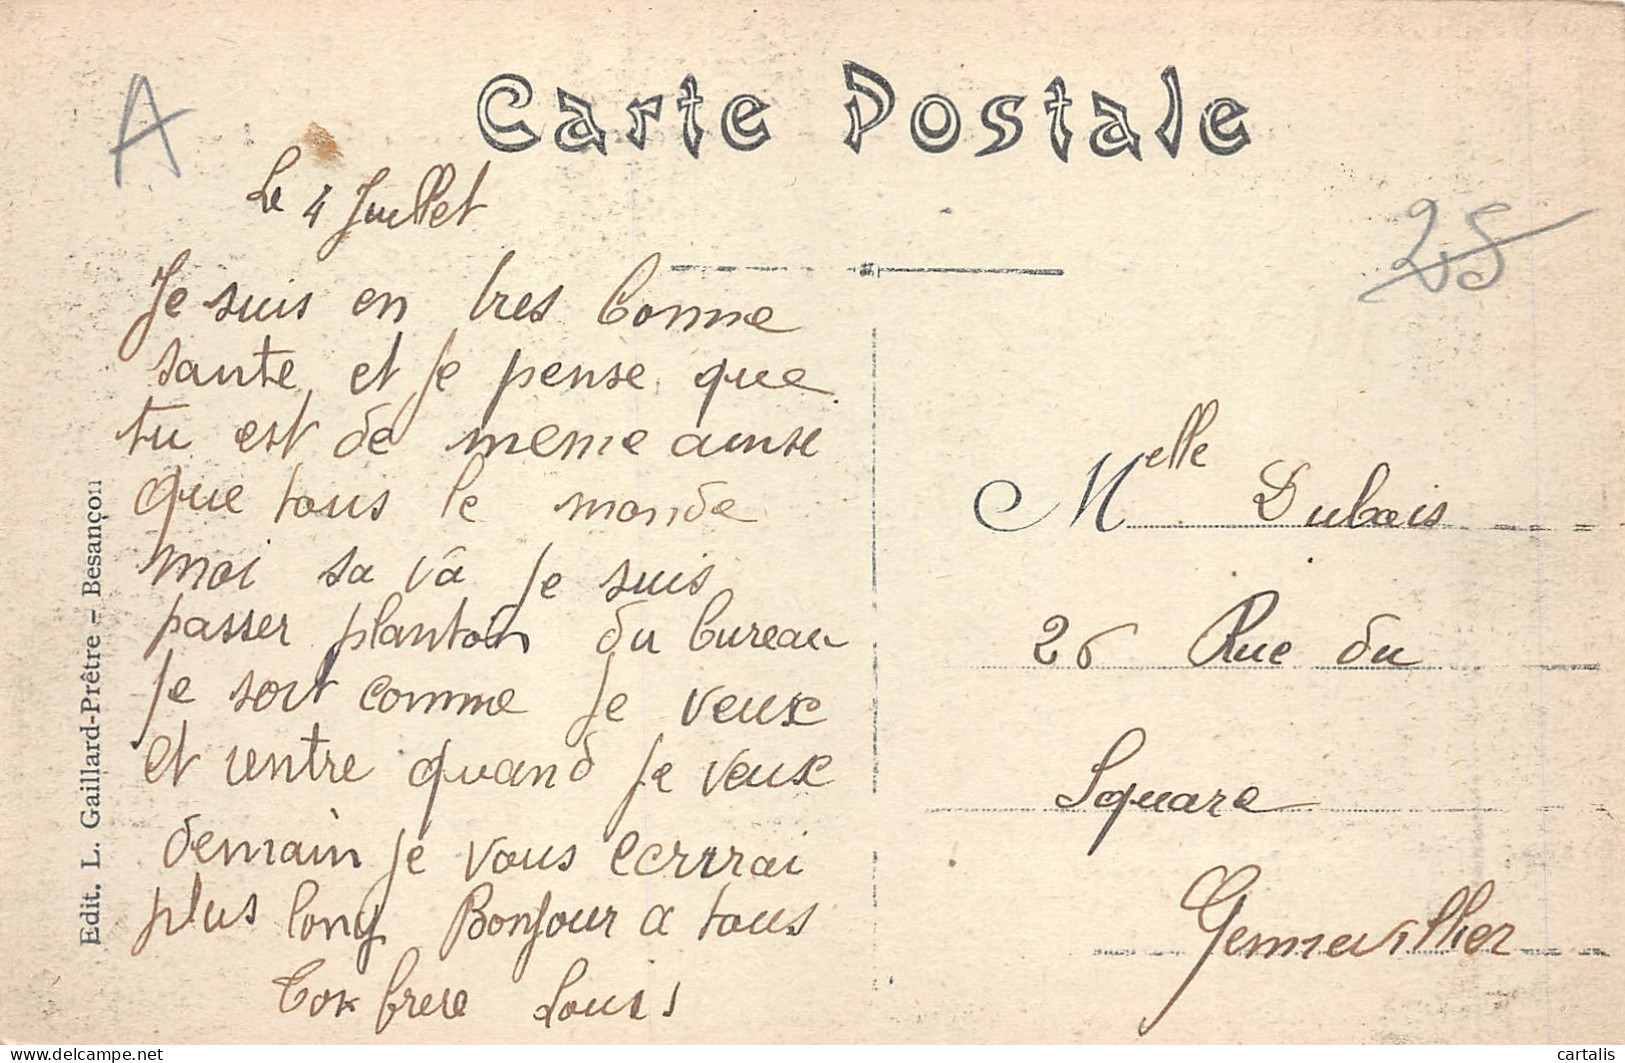 Carte Postale
A
25
Le 4 Juillet
Je suis en tres bonne
sante et je pense que
tu est de meme ainse
que tous le monde
moi sa vâ je suis
passer planton du bureau
je sort comme je veux
et rentre quand je veux
demain je vous ecrrrai
plus long Bonjour a tous
Ton frere Louis
Melle Dubois
26 Rue du
Square
Gennevillier
Edit. L. Gaillard-Prêtre - Besançon
cartalis